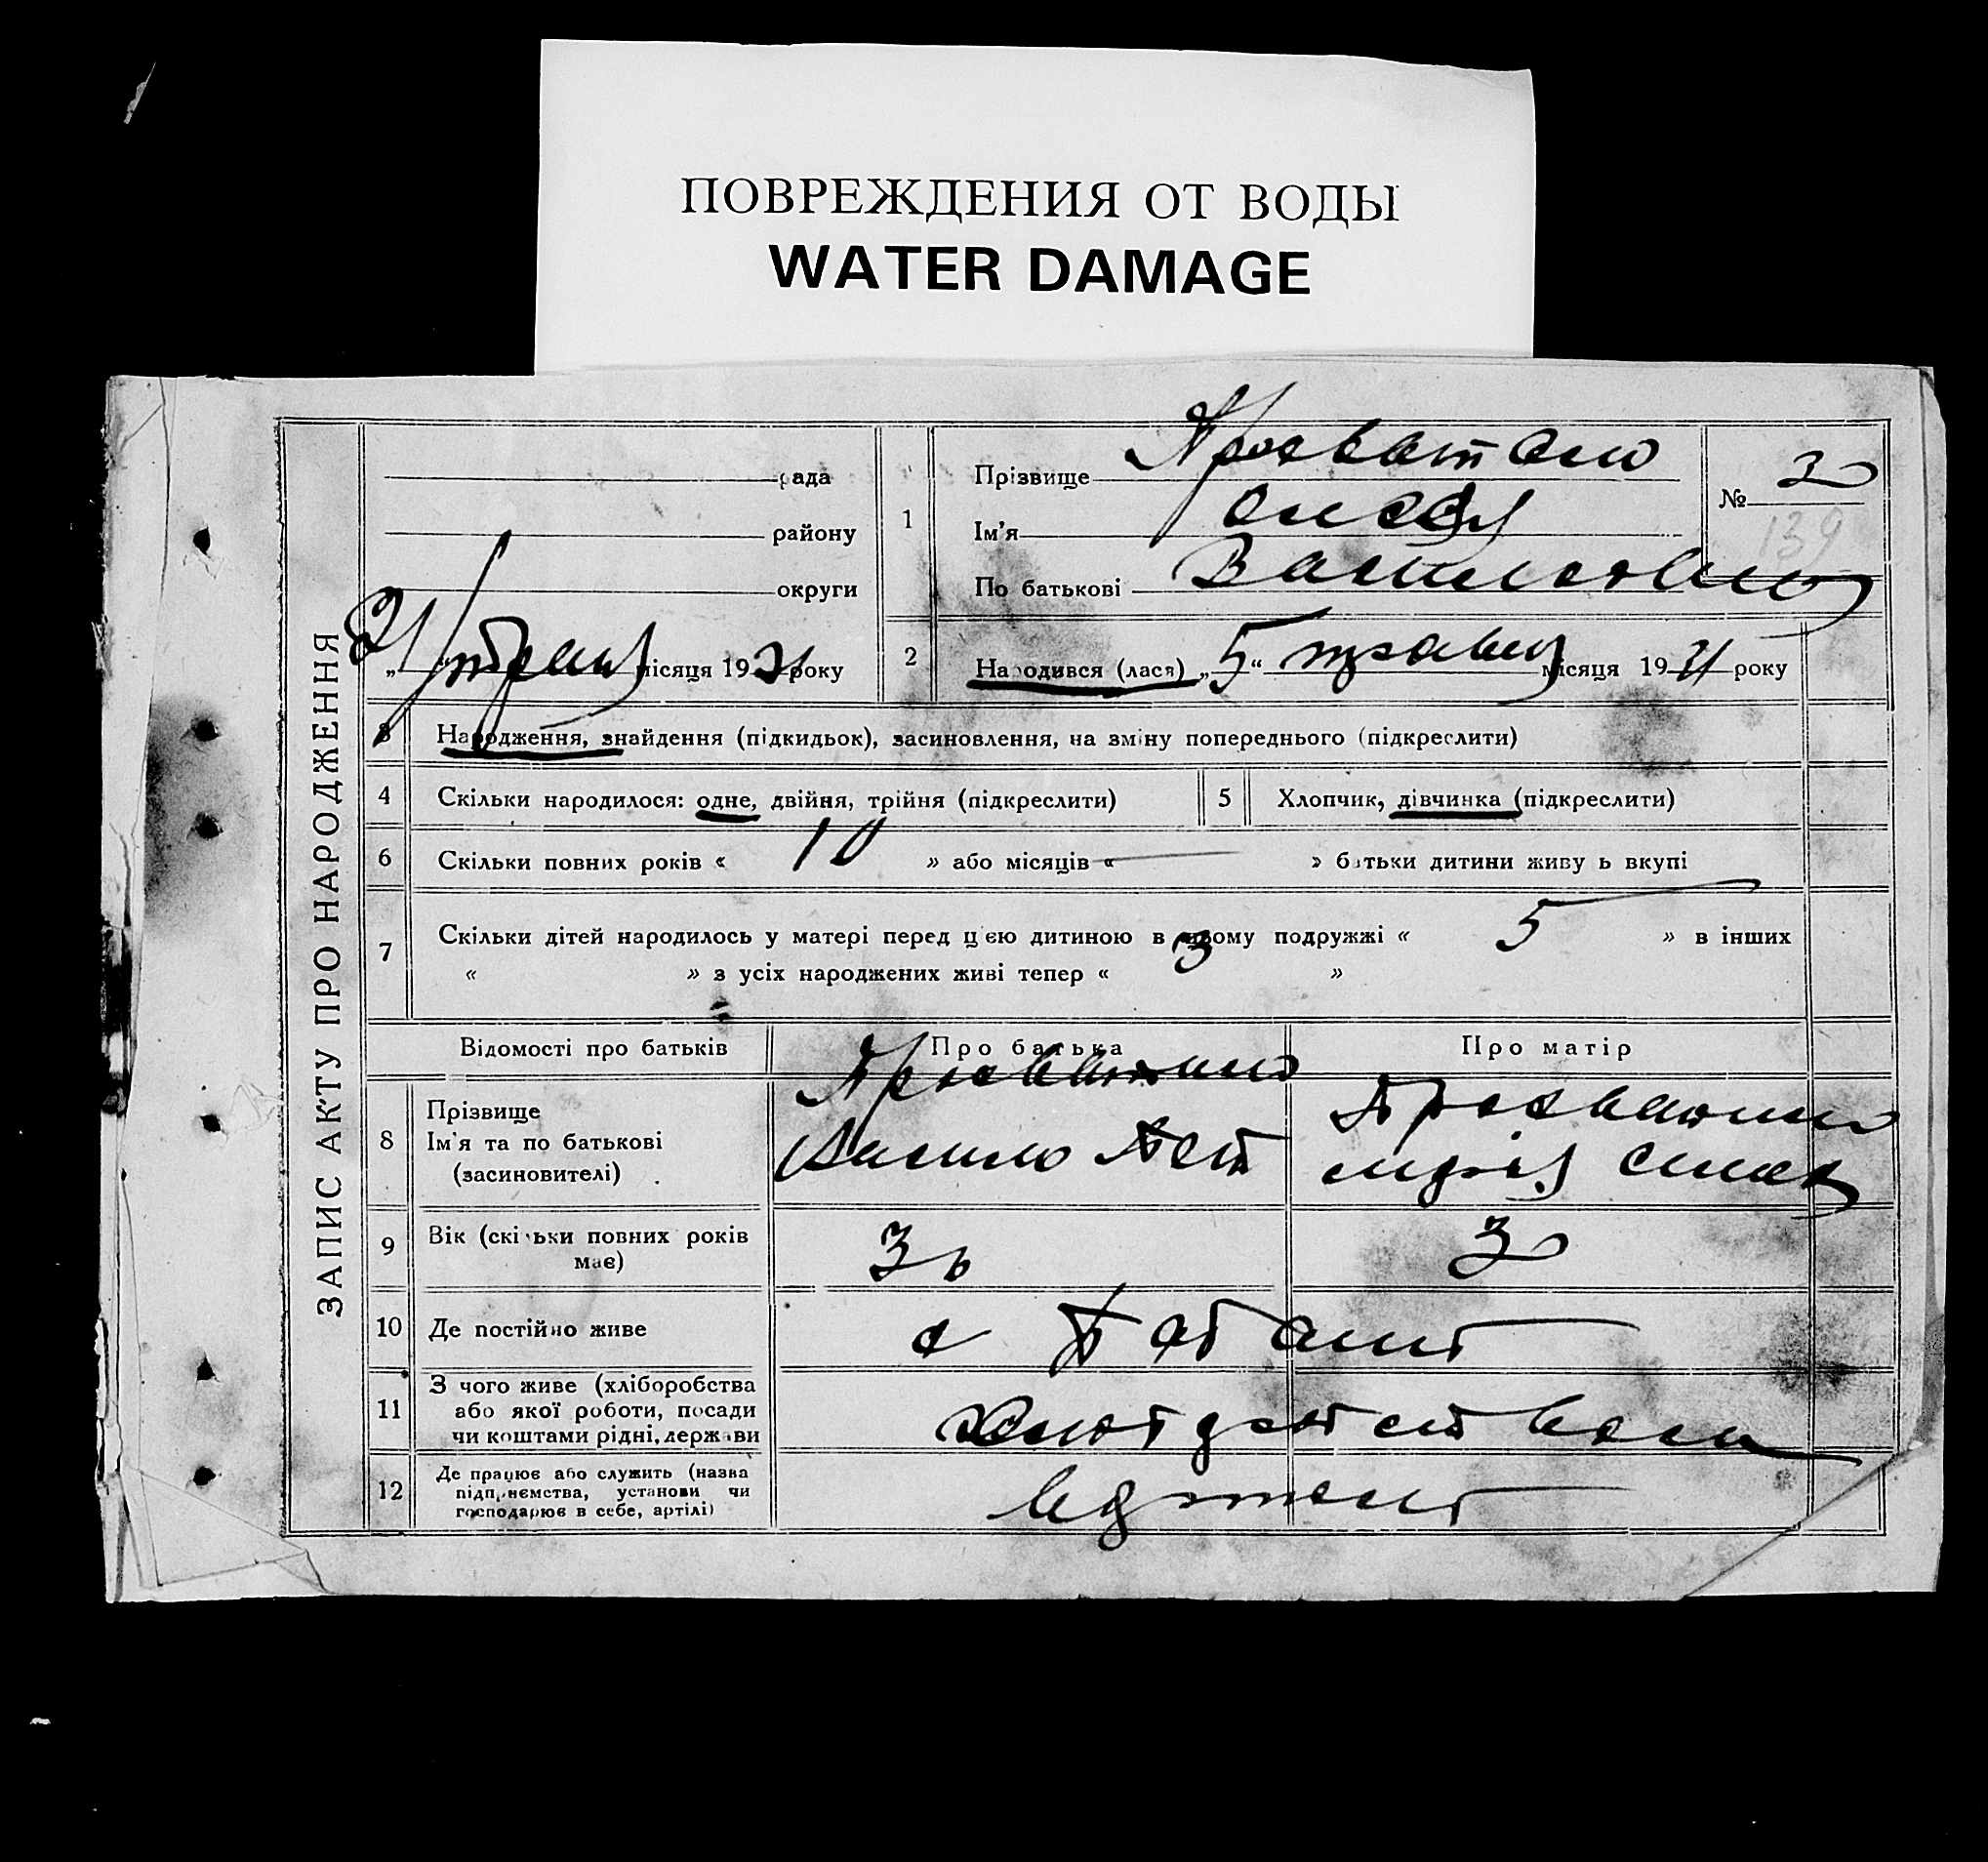 ПОВРЕЖДЕНИЯ ОТ ВОДЫ
WATER DAMAGE
ЗАПИС АКТУ ПРО НАРОДЖЕННЯ
рада
району
округи
„ 21 “ травня місяця 1931 року
1
Прізвище
Ім'я
По батькові Василівна
№ 30
139
2
Народився (лася) „ 5 “ травня місяця 1931 року
3 Народження, знайдення (підкидьок), засиновлення, на зміну попереднього (підкреслити)
4 Скільки народилося: одне, двійня, трійня (підкреслити)
5 Хлопчик, дівчинка (підкреслити)
6 Скільки повних років « 10 » або місяців « — » батьки дитини живуть вкупі
7 Скільки дітей народилось у матері перед цією дитиною в цьому подружжі « 5 » в інших
« » з усіх народжених живі тепер « 3 »
Відомості про батьків
Про батька
Про матір
8 Прізвище
Ім'я та по батькові
(засиновителі)
Василь
9 Вік (скільки повних років
має)
30
10 Де постійно живе
с
11 З чого живе (хліборобства
або якої роботи, посади
чи коштами рідні, держави
12 Де працює або служить (назва
підприємства, установи чи
господарює в себе, артілі)